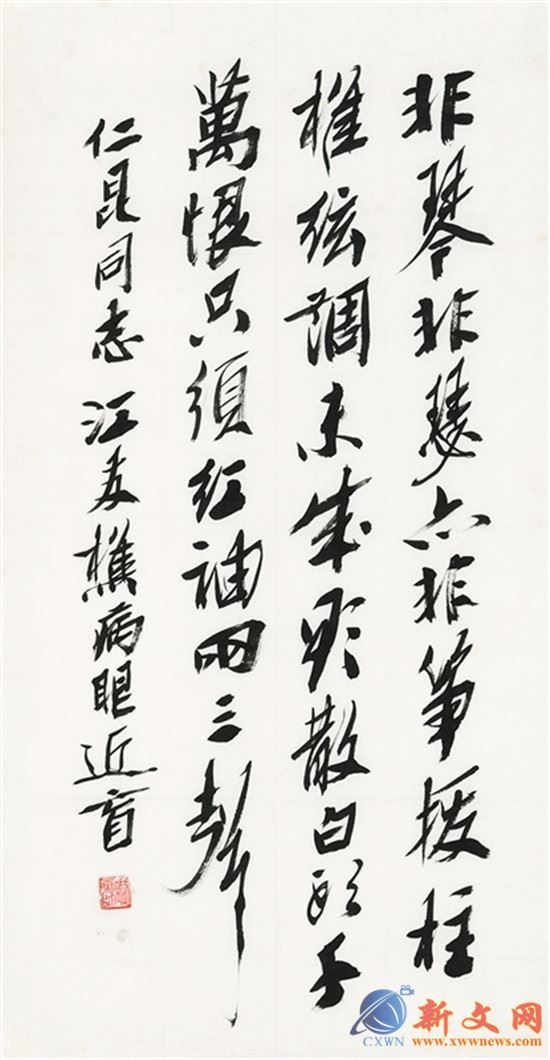 非琴非瑟亦非箏撥柱
推絃調未成欲散白頭千
萬恨只須紅袖兩三聲
仁昆同志 江友樵病眼近盲
新文网
CXWN www.xwwnews.com